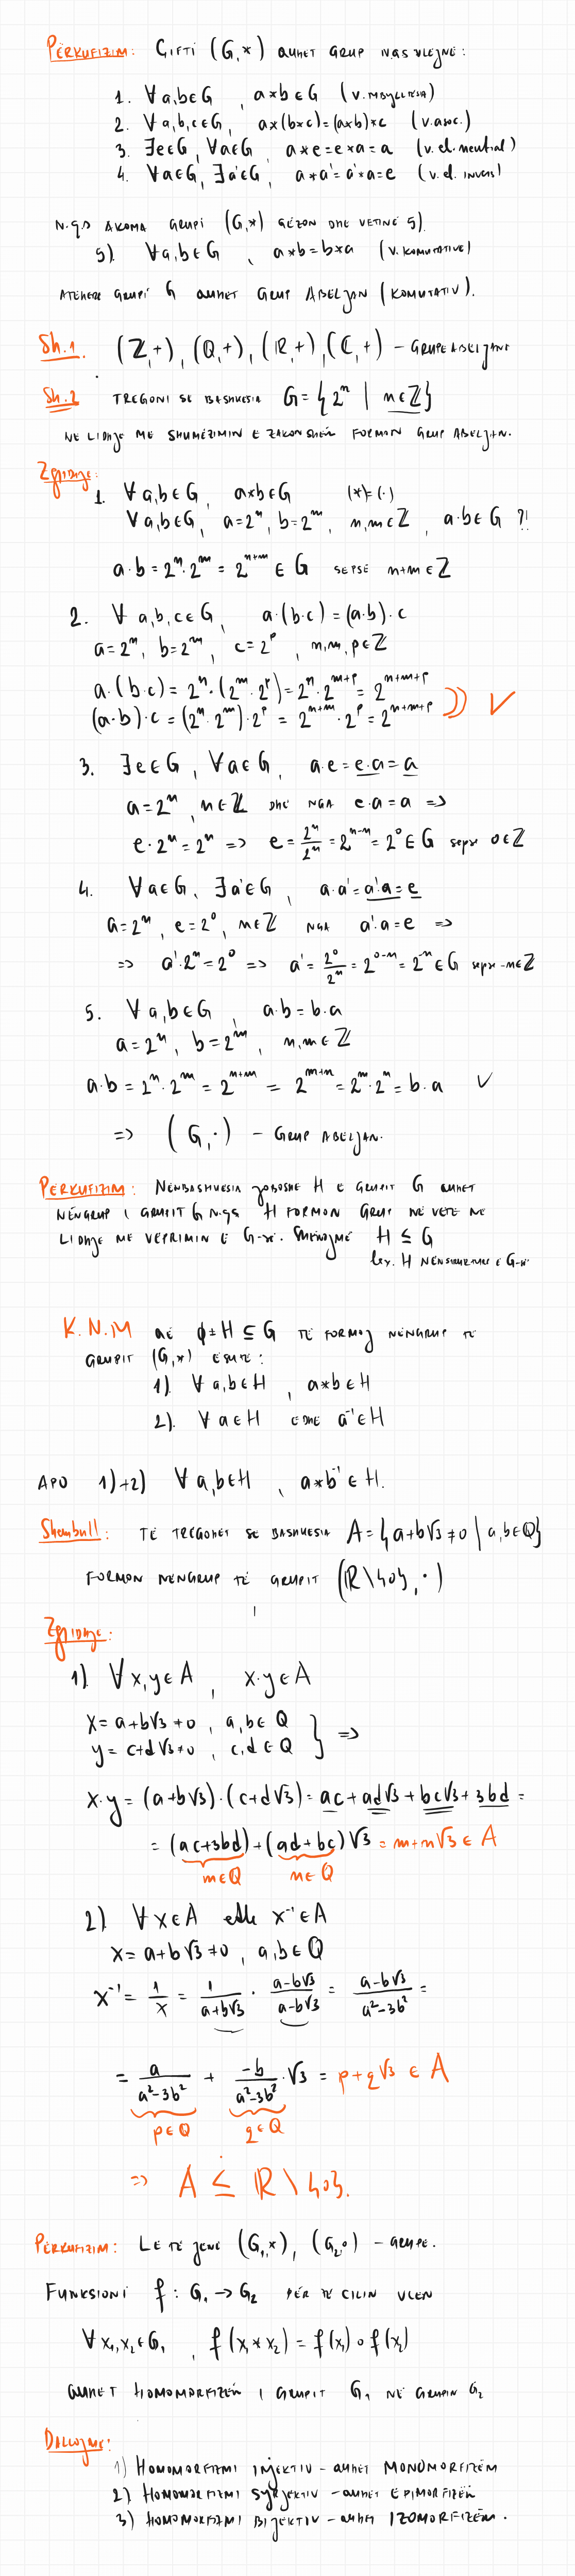 PËRKUFIZIM: ÇIFTI (G,*) QUHET GRUP NQS VLEJNË:
1. ∀a,b∈G , a*b∈G (V. MBYLLTËSIA)
2. ∀a,b,c∈G, a*(b*c)=(a*b)*c (V. ASOC.)
3. ∃e∈G, ∀a∈G, a*e=e*a=a (V. el. neutral)
4. ∀a∈G, ∃a'∈G, a*a'=a'*a=e (V. el. invers)
N.q.s AKOMA GRUPI (G,*) GËZON DHE VETINË 5).
5). ∀a,b∈G , a*b=b*a (V. KOMUTATIVE)
ATËHERË GRUPI G QUHET GRUP ABELJAN (KOMUTATIV).
Sh.1 (ℤ,+), (ℚ,+), (ℝ,+), (ℂ,+) – GRUPE ABELJANE
Sh.2 TREGONI SE BASHKËSIA G={2ⁿ | n∈ℤ}
NË LIDHJE ME SHUMËZIMIN E ZAKONSHËM FORMON GRUP ABELJAN.
Zgjidhje:
1. ∀a,b∈G, a*b∈G (*)=(·)
∀a,b∈G, a=2ⁿ, b=2ᵐ, n,m∈ℤ , a·b∈G ?!
a·b=2ⁿ·2ᵐ=2ⁿ⁺ᵐ∈G SEPSE n+m∈ℤ
2. ∀ a,b,c∈G, a·(b·c)=(a·b)·c
a=2ⁿ, b=2ᵐ, c=2ᵖ, n,m,p∈ℤ
a·(b·c)=2ⁿ·(2ᵐ·2ᵖ)=2ⁿ·2ᵐ⁺ᵖ=2ⁿ⁺ᵐ⁺ᵖ
(a·b)·c=(2ⁿ·2ᵐ)·2ᵖ=2ⁿ⁺ᵐ·2ᵖ=2ⁿ⁺ᵐ⁺ᵖ ✓
3. ∃e∈G, ∀a∈G, a·e=e·a=a
a=2ⁿ, n∈ℤ DHE NGA e·a=a =>
e·2ⁿ=2ⁿ => e=2ⁿ/2ⁿ=2ⁿ⁻ⁿ=2⁰∈G sepse 0∈ℤ
4. ∀a∈G, ∃a'∈G, a·a'=a'·a=e
a=2ⁿ, e=2⁰, n∈ℤ NGA a'·a=e =>
=> a'·2ⁿ=2⁰ => a'=2⁰/2ⁿ=2⁰⁻ⁿ=2⁻ⁿ∈G sepse -n∈ℤ
5. ∀a,b∈G, a·b=b·a
a=2ⁿ, b=2ᵐ, n,m∈ℤ
a·b=2ⁿ·2ᵐ=2ⁿ⁺ᵐ=2ᵐ⁺ⁿ=2ᵐ·2ⁿ=b·a ✓
=> (G,·) – GRUP ABELJAN.
PËRKUFIZIM: NËNBASHKËSIA JOBOSHE H E GRUPIT G QUHET
NËNGRUP I GRUPIT G N.q.s H FORMON GRUP NË VETE NË
LIDHJE ME VEPRIMIN E G-së. SHËNOJMË H ≤ G
lex. H NËNSTRUKTURË E G-së
K.N.M QË ∅≠H⊆G TË FORMOJ NËNGRUP TË
GRUPIT (G,*) ËSHTË:
1). ∀a,b∈H , a*b∈H
2). ∀a∈H EDHE a⁻¹∈H
APO 1)+2) ∀a,b∈H , a*b⁻¹∈H.
Shembull: TË TREGOHET SE BASHKËSIA A={a+b√3≠0 | a,b∈ℚ}
FORMON NËNGRUP TË GRUPIT (ℝ\{0}, ·)
Zgjidhje:
1) ∀x,y∈A , x·y∈A
x=a+b√3≠0 , a,b∈ℚ
y=c+d√3≠0 , c,d∈ℚ } =>
x·y=(a+b√3)·(c+d√3)=ac+ad√3+bc√3+3bd=
=(ac+3bd)+(ad+bc)√3=m+n√3∈A
m∈ℚ n∈ℚ
2) ∀x∈A edhe x⁻¹∈A
x=a+b√3≠0 , a,b∈ℚ
x⁻¹=1/x=1/(a+b√3)·(a-b√3)/(a-b√3)=(a-b√3)/(a²-3b²)=
=a/(a²-3b²)+(-b)/(a²-3b²)·√3=p+q√3∈A
p∈ℚ q∈ℚ
=> A ≤ ℝ\{0}.
PËRKUFIZIM: LE TË JENË (G₁,*), (G₂,∘) – GRUPE.
FUNKSIONI f: G₁→G₂ PËR TË CILIN VLEN
∀x₁,x₂∈G₁ , f(x₁*x₂)=f(x₁)∘f(x₂)
QUHET HOMOMORFIZËM I GRUPIT G₁ NË GRUPIN G₂
Dallojmë:
1) HOMOMORFIZMI INJEKTIV – QUHET MONOMORFIZËM
2) HOMOMORFIZMI SYRJEKTIV – QUHET EPIMORFIZËM
3) HOMOMORFIZMI BIJEKTIV – QUHET IZOMORFIZËM.